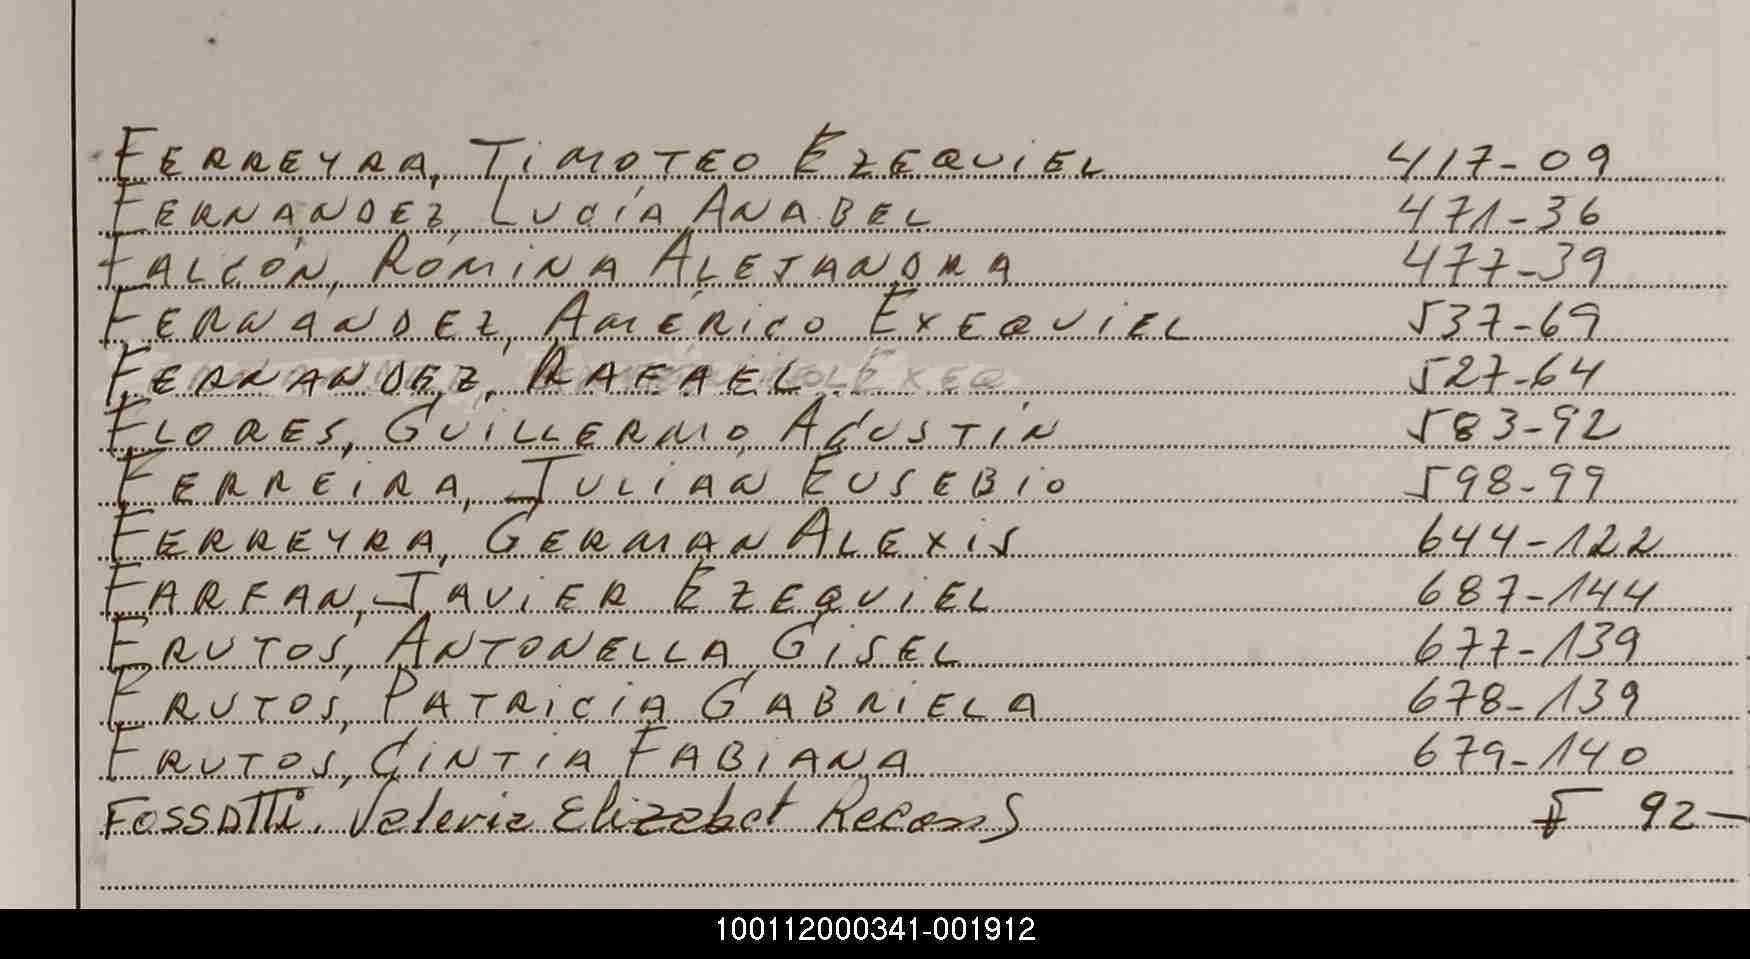 FERREYRA, TIMOTEO EZEQUIEL 417-09
FERNANDEZ, LUCÍA ANABEL 471-36
FALCÓN, ROMINA ALEJANDRA 477-39
FERNANDEZ, AMÉRICO EXEQUIEL 537-69
FERNANDEZ, RAFAEL 527-64
FLORES, GUILLERMO AGUSTÍN 583-92
FERREIRA, JULIÁN EUSEBIO 598-99
FERREYRA, GERMAN ALEXIS 644-122
FARFAN, JAVIER EZEQUIEL 687-144
FRUTOS, ANTONELLA GISEL 677-139
FRUTOS, PATRICIA GABRIELA 678-139
FRUTOS, CINTIA FABIANA 679-140
FOSSATTI. Valeria Elizabet 92-
100112000341-001912